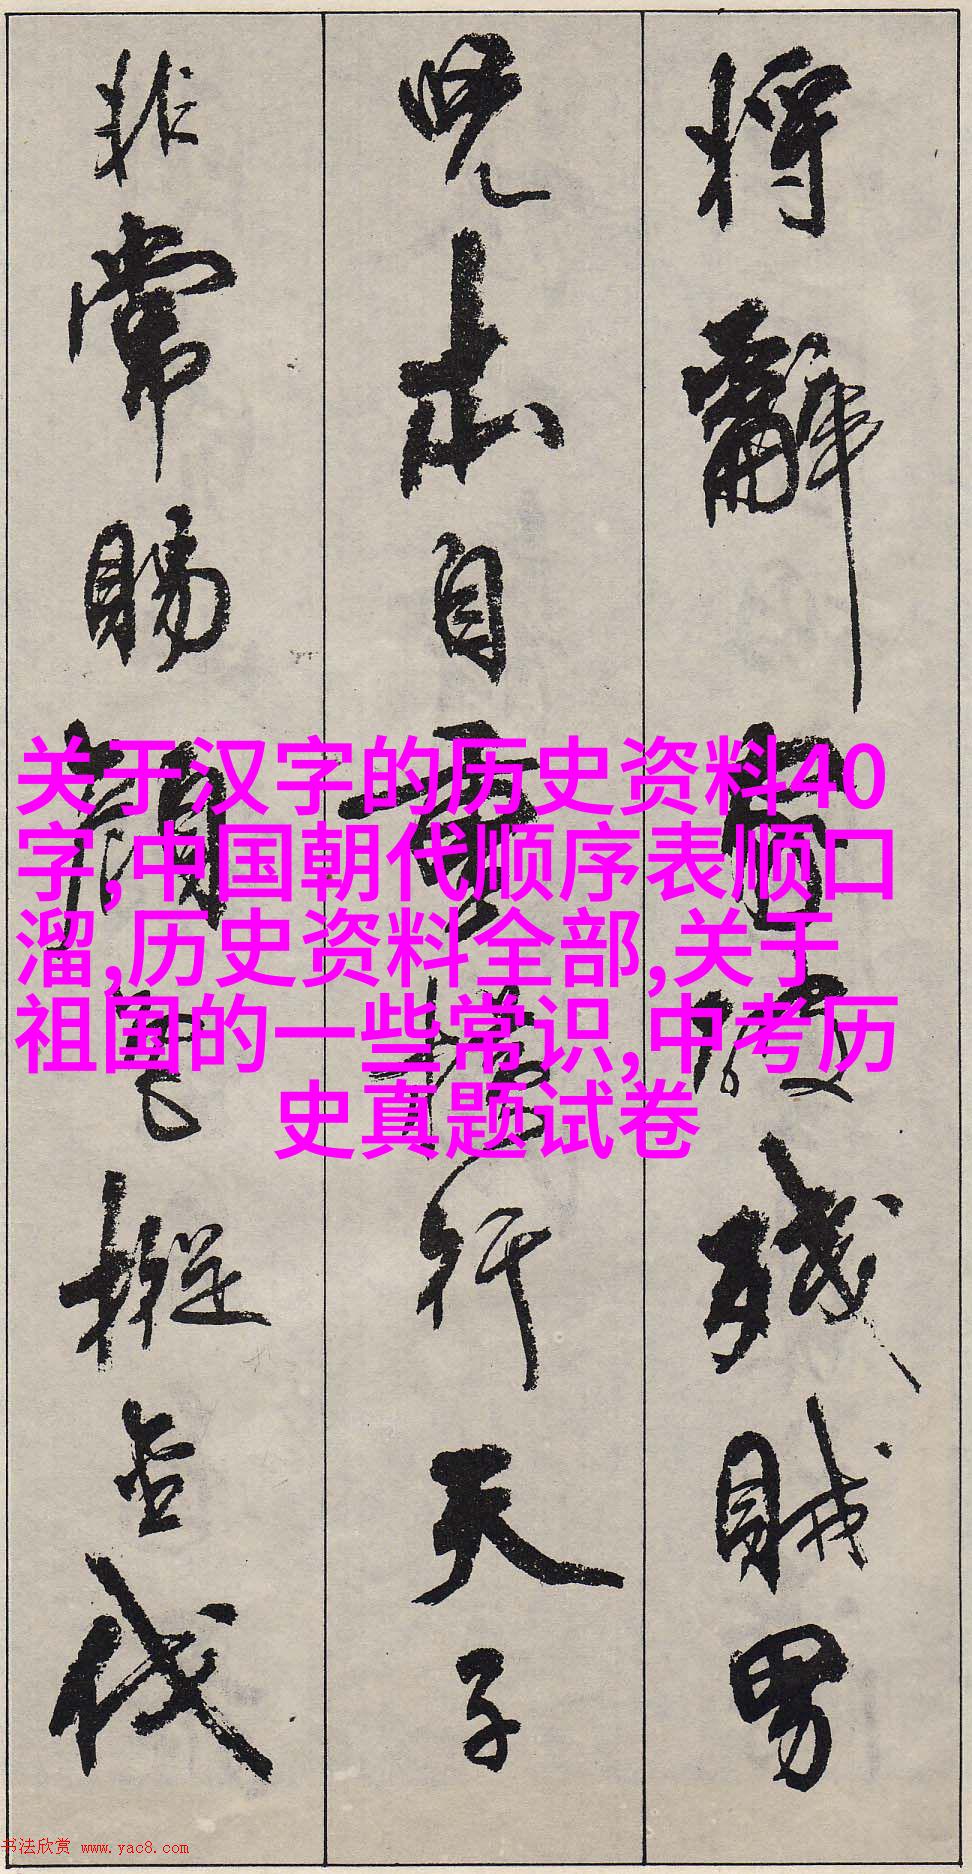 将辭破殘賊男
兒本自重横行天子
非常賜顏色摐金伐
关于汉字的历史资料40
字,中国朝代顺序表顺口
溜,历史资料全部,关于
祖国的一些常识,中考历
史真题试卷
书法欣赏 www.yac8.com